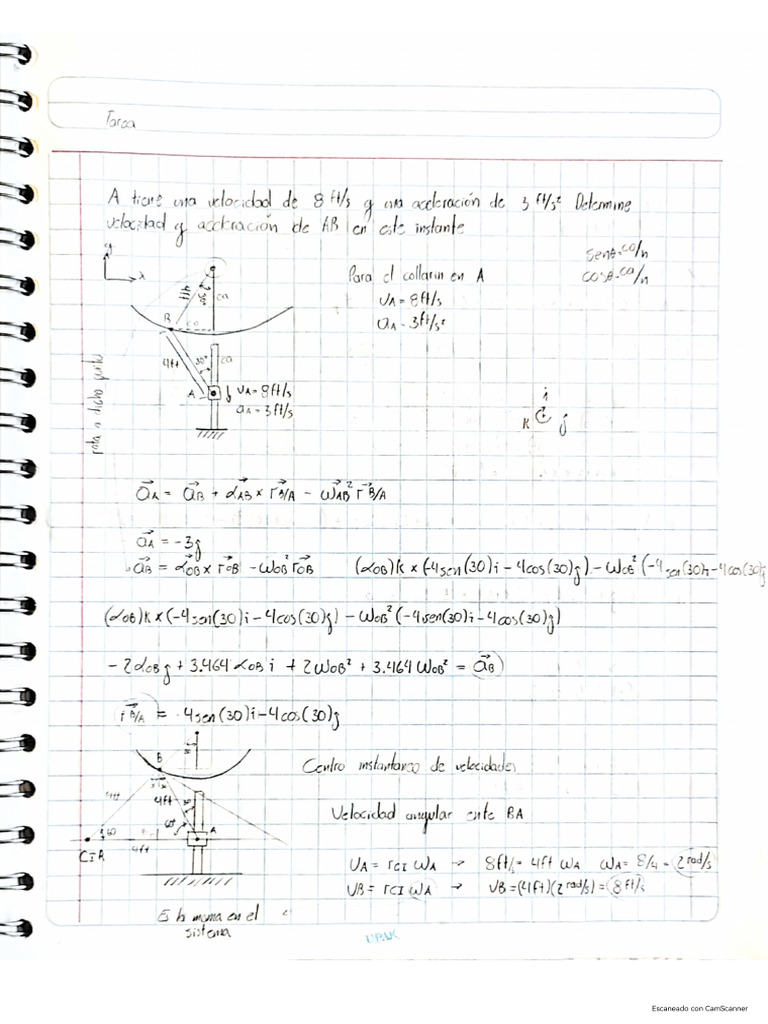 Tarea
A tiene una velocidad de 8 ft/s y una acceleración de 3 ft/s² Determine
velocidad y acceleración de AB en este instante
y
x
Senθ=co/h
cosθ=ca/h
Para el collarin en A
UA = 8ft/s
aA = 3ft/s²
4ft
30°
ca
B
co
4ft
30°
ca
A
UA = 8ft/s
aA = 3ft/s
rota a dicho punto
i
K
j
aA = aB + αAB x rB/A - ωAB² rB/A
aA = -3j
aB = αOB x rOB - ωOB² rOB
(αOB)k x (-4sen(30)i - 4cos(30)j) - ωOB² (-4sen(30)i - 4cos(30)j
(αOB)k x (-4sen(30)i - 4cos(30)j) - ωOB² (-4sen(30)i - 4cos(30)j)
- 2αOBj + 3.464 αOB i + 2ωOB² + 3.464 ωOB² = aB
rB/A = -4sen(30)i - 4cos(30)j
B
Centro instantaneo de velocidades
4ft
4ft
60
60°
A
CIR
4ft
Velocidad angular ente BA
UA = rCI ωA → 8ft/s = 4ft ωA ωA = 8/4 = 2 rad/s
UB = rCI ωA → UB = (4ft)(2 rad/s) = 8 ft/s
Es la misma en el
sistema
Escaneado con CamScanner